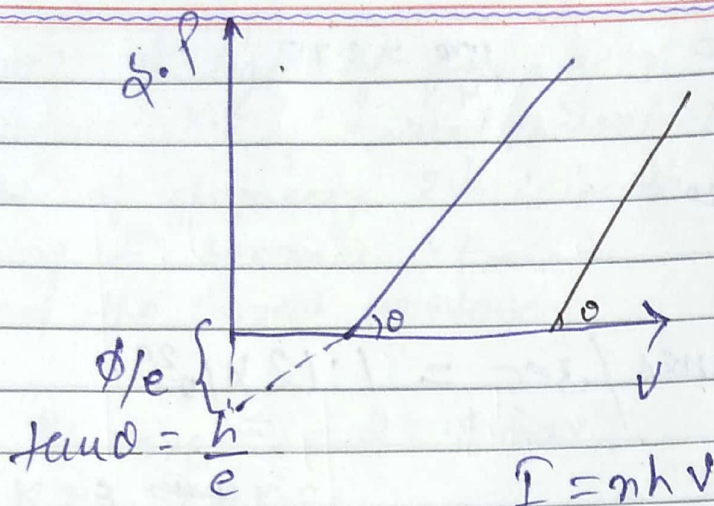 S.P
θ
θ
ϕ/e
ν
tanθ = h/e
I = nhν